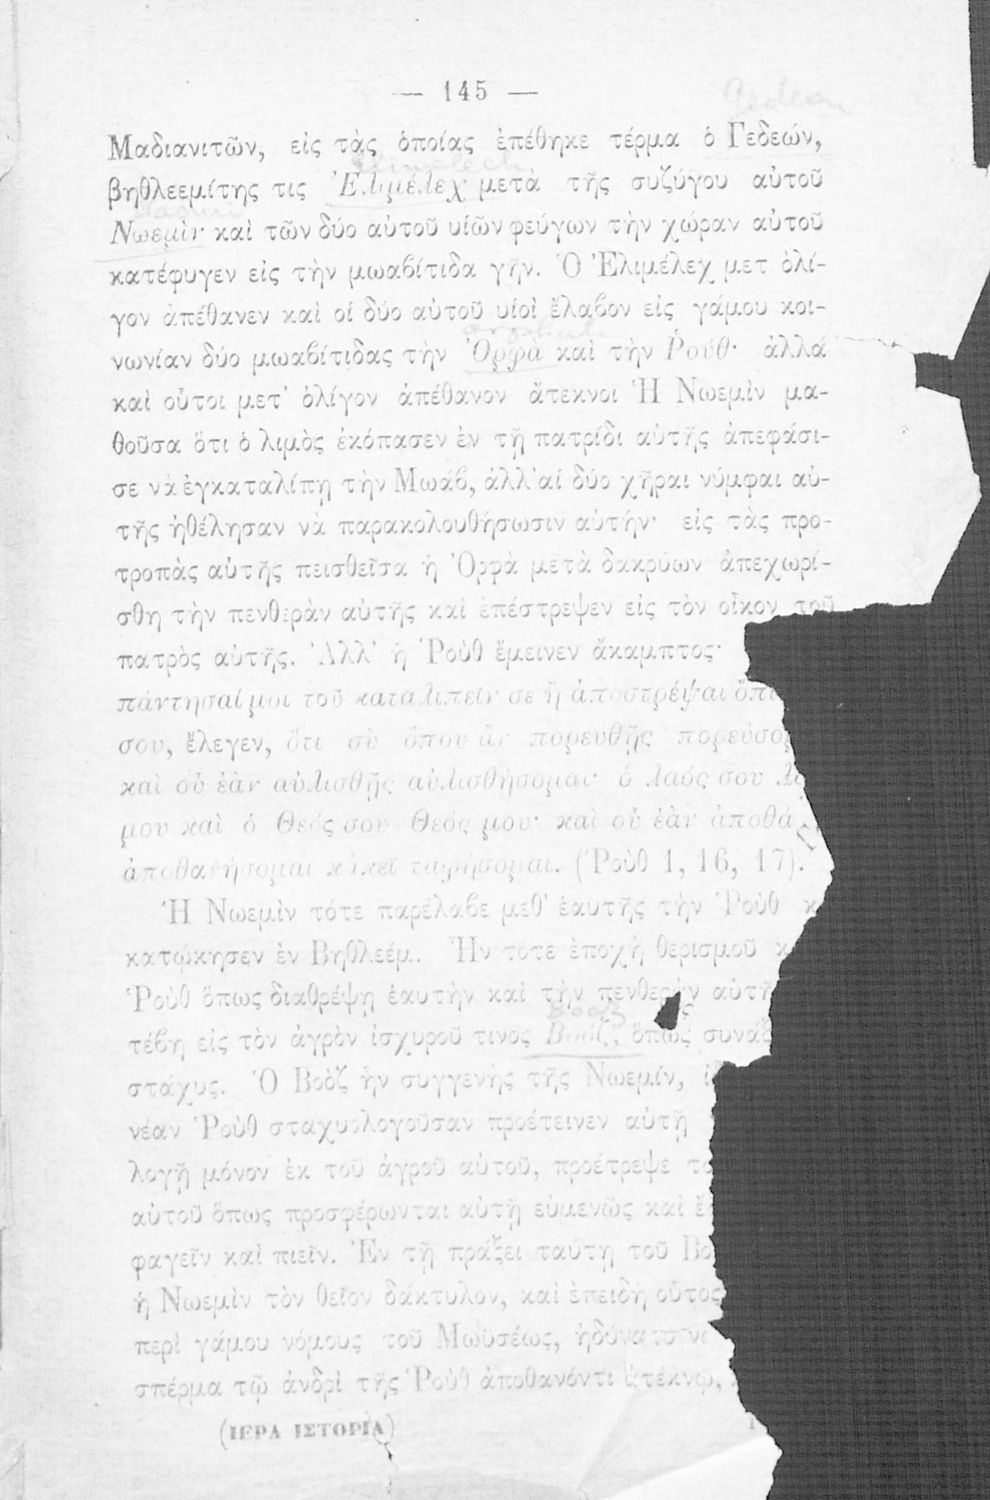 — 145 —
Gedeon
Μαδιανιτῶν, εἰς τὰς ὁποίας ἐπέθηκε τέρμα ὁ Γεδεών,
Elimelech
βηθλεεμίτης τις Ἐλιμέλεχ μετὰ τῆς συζύγου αὐτοῦ
Νωεμὶν καὶ τῶν δύο αὐτοῦ υἱῶν φεύγων τὴν χώραν αὐτοῦ
κατέφυγεν εἰς τὴν μωαβίτιδα γῆν. Ὁ Ἐλιμέλεχ μετ ὀλί-
γον ἀπέθανεν καὶ οἱ δύο αὐτοῦ υἱοὶ ἔλαβον εἰς γάμου κοι-
orphah
νωνίαν δύο μωαβίτιδας τὴν Ὀρφὰ καὶ τὴν Ῥούθ· ἀλλά
καὶ οὗτοι μετ' ὀλίγον ἀπέθανον ἄτεκνοι Ἡ Νωεμὶν μα-
θοῦσα ὅτι ὁ λιμὸς ἐκόπασεν ἐν τῇ πατρίδι αὐτῆς ἀπεφάσι-
σε νὰ ἐγκαταλίπῃ τὴν Μωάβ, ἀλλ' αἱ δύο χῆραι νύμφαι αὐ-
τῆς ἠθέλησαν νὰ παρακολουθήσωσιν αὐτήν· εἰς τὰς προ-
τροπὰς αὐτῆς πεισθεῖσα ἡ Ὀρφὰ μετὰ δακρύων ἀπεχωρί-
σθη τὴν πενθερὰν αὐτῆς καὶ ἐπέστρεψεν εἰς τὸν οἶκον τοῦ
πατρὸς αὐτῆς. Ἀλλ' ἡ Ῥοὺθ ἔμεινεν ἄκαμπτος·
πάντησαί μοι τοῦ καταλιπεῖν σε ἢ ἀποστρέψαι ὄπι
σου, ἔλεγεν, ὅτι σὺ ὅπου ἂν πορευθῇς πορεύσο
καὶ οὗ ἐὰν αὐλισθῇς αὐλισθήσομαι· ὁ λαός σου λα
μου καὶ ὁ Θεός σου Θεός μου· καὶ οὗ ἐὰν ἀποθά
ἀποθανήσομαι κἀκεῖ ταφήσομαι. (Ῥοὺθ 1, 16, 17).
Ἡ Νωεμὶν τότε παρέλαβε μεθ' ἑαυτῆς τὴν Ῥοὺθ κ
κατῴκησεν ἐν Βηθλεέμ. Ἦν τότε ἐποχὴ θερισμοῦ κ
Ῥοὺθ ὅπως διαθρέψῃ ἑαυτὴν καὶ τὴν πενθερὰν αὐτῆ
Booz
τέβη εἰς τὸν ἀγρὸν ἰσχυροῦ τινος Βοὸζ, ὅπως συνάξ
στάχυς. Ὁ Βοὸζ ἦν συγγενὴς τῆς Νωεμίν, ἰ
νέαν Ῥοὺθ σταχυολογοῦσαν προέτεινεν αὐτῇ
λογῇ μόνον ἐκ τοῦ ἀγροῦ αὐτοῦ, προέτρεψε το
αὐτοῦ ὅπως προσφέρωνται αὐτῇ εὐμενῶς καὶ ἔ
φαγεῖν καὶ πιεῖν. Ἐν τῇ πράξει ταύτῃ τοῦ Βο
ἡ Νωεμὶν τὸν θεῖον δάκτυλον, καὶ ἐπειδὴ οὗτος
περὶ γάμου νόμους τοῦ Μωϋσέως, ἠδύνατο ν
σπέρμα τῷ ἀνδρὶ τῆς Ῥοὺθ ἀποθανόντι ἀτέκνῳ,
(ΙΕΡΑ ΙΣΤΟΡΙΑ)